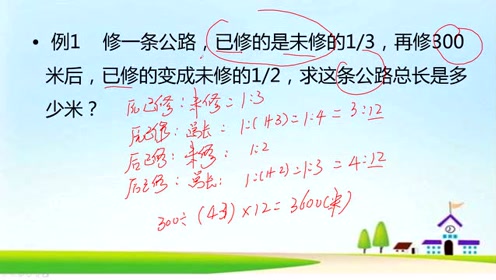 • 例1 修一条公路，已修的是未修的1/3，再修300
米后，已修的变成未修的1/2，求这条公路总长是多
少米？
原已修：未修＝1:3
原已修：总长：1:(1+3)=1:4=3:12
后已修：未修：1:2
后已修：总长：1:(1+2)=1:3=4:12
300÷(4-3)×12=3600(米)